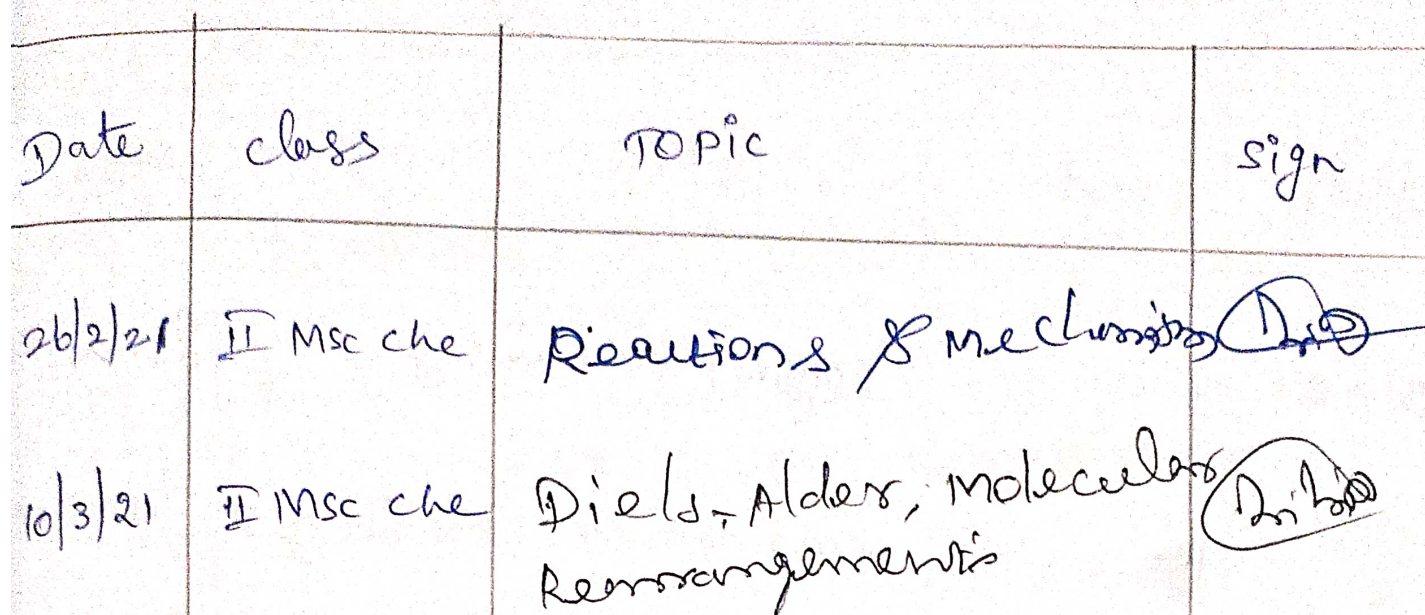 Date class TOPIC sign
26/2/21 II Msc che Reactions & Mechanisms
10/3/21 II Msc che Diels-Alder, Molecular
Rearrangements